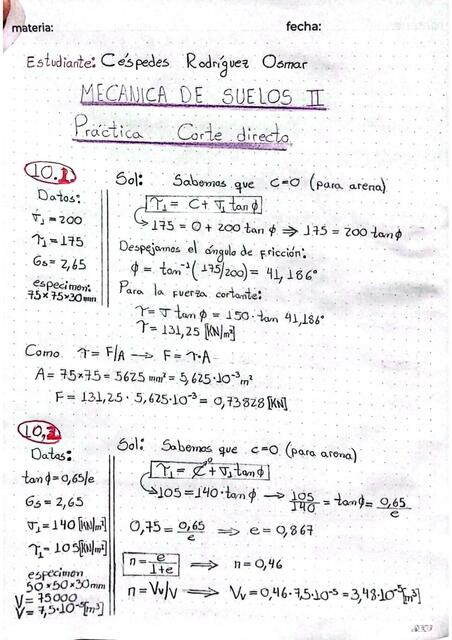 materia:
fecha:
Estudiante: Céspedes Rodríguez Osmar
MECANICA DE SUELOS II
Práctica Corte directo
10.1.
Datos:
σ₁ = 200
τ₁ = 175
Gs = 2,65
especimen:
75 x 75 x 30 mm
Sol: Sabemos que c=0 (para arena)
τ₁ = C + σ₁ tan ϕ
175 = 0 + 200 tan ϕ ⇒ 175 = 200 tan ϕ
Despejamos el ángulo de fricción:
ϕ = tan⁻¹(175/200) = 41,186°
Para la fuerza cortante:
τ = σ tan ϕ = 150 · tan 41,186°
τ = 131,25 [KN/m²]
Como τ = F/A → F = τ·A
A = 75*75 = 5625 mm² = 5,625·10⁻³ m²
F = 131,25 · 5,625·10⁻³ = 0,73828 [KN]
10,2.
Datos:
tan ϕ = 0,65/e
Gs = 2,65
σ₁ = 140 [KN/m²]
τ₁ = 105 [KN/m²]
especimen
50 x 50 x 30 mm
V = 75000
V = 7,5·10⁻⁵ [m³]
Sol: Sabemos que c=0 (para arena)
τ₁ = C⁰ + σ₁ tan ϕ
105 = 140 · tan ϕ → 105/140 = tan ϕ = 0,65/e
0,75 = 0,65/e ⇒ e = 0,867
n = e/1+e ⇒ n = 0,46
n = Vv/V ⇒ Vv = 0,46 · 7,5·10⁻⁵ = 3,48·10⁻⁵ [m³]